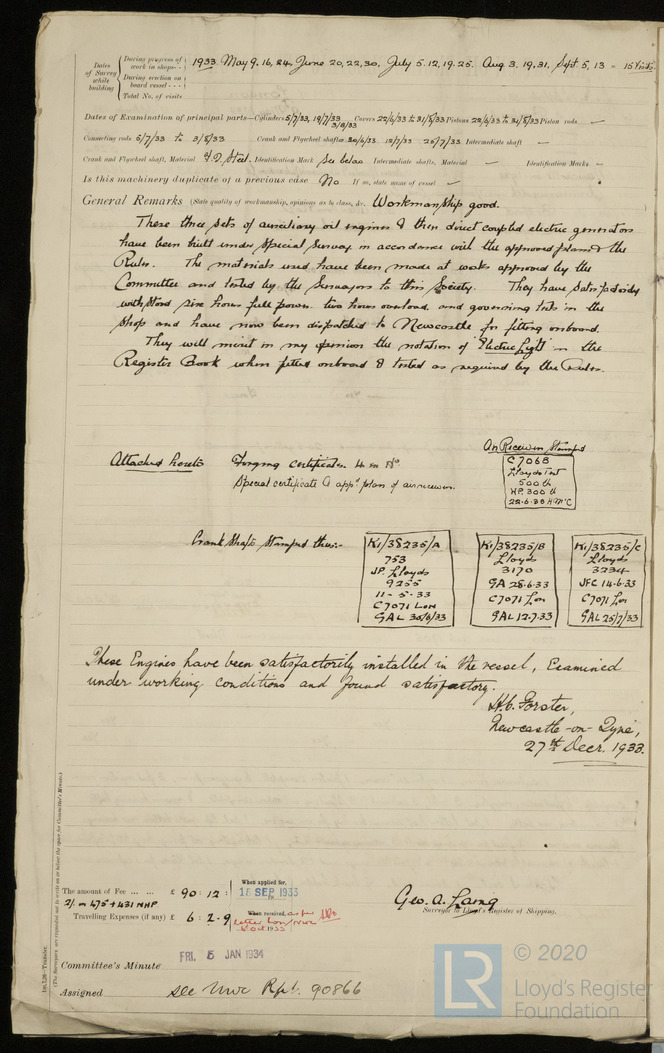 Dates of Survey while building
During progress of work in shops - - 1933 May 9, 16, 24, June 20, 22, 30, July 5. 12, 19. 25. Aug 3. 19. 31, Sept 5, 13 = 15 Visits.
During erection on board vessel - - -
Total No. of visits
Dates of Examination of principal parts—Cylinders 5/7/33, 19/7/33 3/8/33 Covers 22/6/33 to 31/8/33 Pistons 22/6/33 to 31/8/33 Piston rods —
Connecting rods 5/7/33 to 3/8/33 Crank and Flywheel shafts 30/6/33 12/7/33 25/7/33 Intermediate shaft —
Crank and Flywheel shaft, Material Steel. Identification Mark See below Intermediate shafts, Material — Identification Marks —
Is this machinery duplicate of a previous case No If so, state name of vessel —
General Remarks (State quality of workmanship, opinions as to class, &c. Workmanship good.
These three sets of auxiliary oil engines & their direct coupled electric generators
have been built under special survey in accordance with the approved plans & the
Rules. The materials used have been made at works approved by the
Committee and tested by the Surveyors to this Society. They have satisfactorily
withstood six hours full power. two hours overload, and governing tests in the
shop and have now been dispatched to Newcastle for fitting onboard.
They will merit in my opinion the notation of "Electric Light" in the
Register Book when fitted onboard & tested as required by the Rules.
Air Receiver Stamped
C7068
Lloyds Test
500 lb
WP. 300 lb
22.6.33
Attached hereto Forging certificates 4 in No
Special certificate & appd plan of air receiver.
Crank Shafts Stamped thus:-
K1/38235/A
753
JP. Lloyds
9255
11-5-33
C7071 Lon
GAL 30/6/33
K1/38235/B
Lloyds
3170
GA 28.6.33
C7071 Lon
GAL 12.7.33
K1/38235/C
Lloyds
3234
JFC 14.6.33
C7071 Lon
GAL 25/7/33
These Engines have been satisfactorily installed in the vessel, Examined
under working conditions and found satisfactory.
H.C. Forster,
Newcastle-on-Tyne,
27th Decr. 1933.
The amount of Fee ... ... £ 90 : 12 : When applied for, 18 SEP 1933
Travelling Expenses (if any) £ 6 : 2 . 9 When received,
Geo. A. Laing
Surveyor to Lloyd's Register of Shipping.
FRI. 5 JAN 1934
Committee's Minute
Assigned see Nwc Rpt. 90866
(The Surveyors are requested not to write on or below the space for Committee's Minute.)
© 2020
LR
Lloyd's Register
Foundation